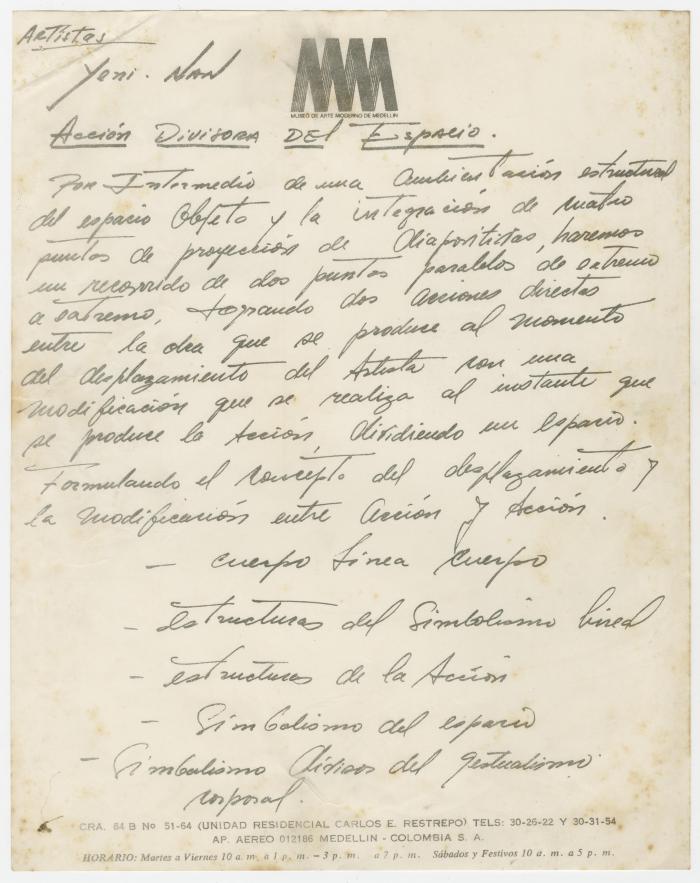 Artistas
Yeni. Nan
MUSEO DE ARTE MODERNO DE MEDELLIN
Acción Divisora Del Espacio.
Por Intermedio de una Ambientación estructural
del espacio Objeto y la integración de cuatro
puntos de proyección de Diapositivas, haremos
un recorrido de dos puntos paralelos de extremo
a extremo, logrando dos acciones directas
entre la obra que se produce al momento
del desplazamiento del Artista con una
modificación que se realiza al instante que
se produce la Acción, dividiendo un espacio.
Formulando el concepto del desplazamiento y
la modificación entre Acción y Acción.
- cuerpo Línea cuerpo
- estructuras del Simbolismo lineal
- estructuras de la Acción
- Simbolismo del espacio
- Simbolismo del gestualismo
corporal.
CRA. 64 B Nº 51-64 (UNIDAD RESIDENCIAL CARLOS E. RESTREPO) TELS: 30-26-22 Y 30-31-54
AP. AEREO 012186 MEDELLIN - COLOMBIA S. A.
HORARIO: Martes a Viernes 10 a. m. a 1 p. m. - 3 p. m. a 7 p. m. Sábados y Festivos 10 a. m. a 5 p. m.